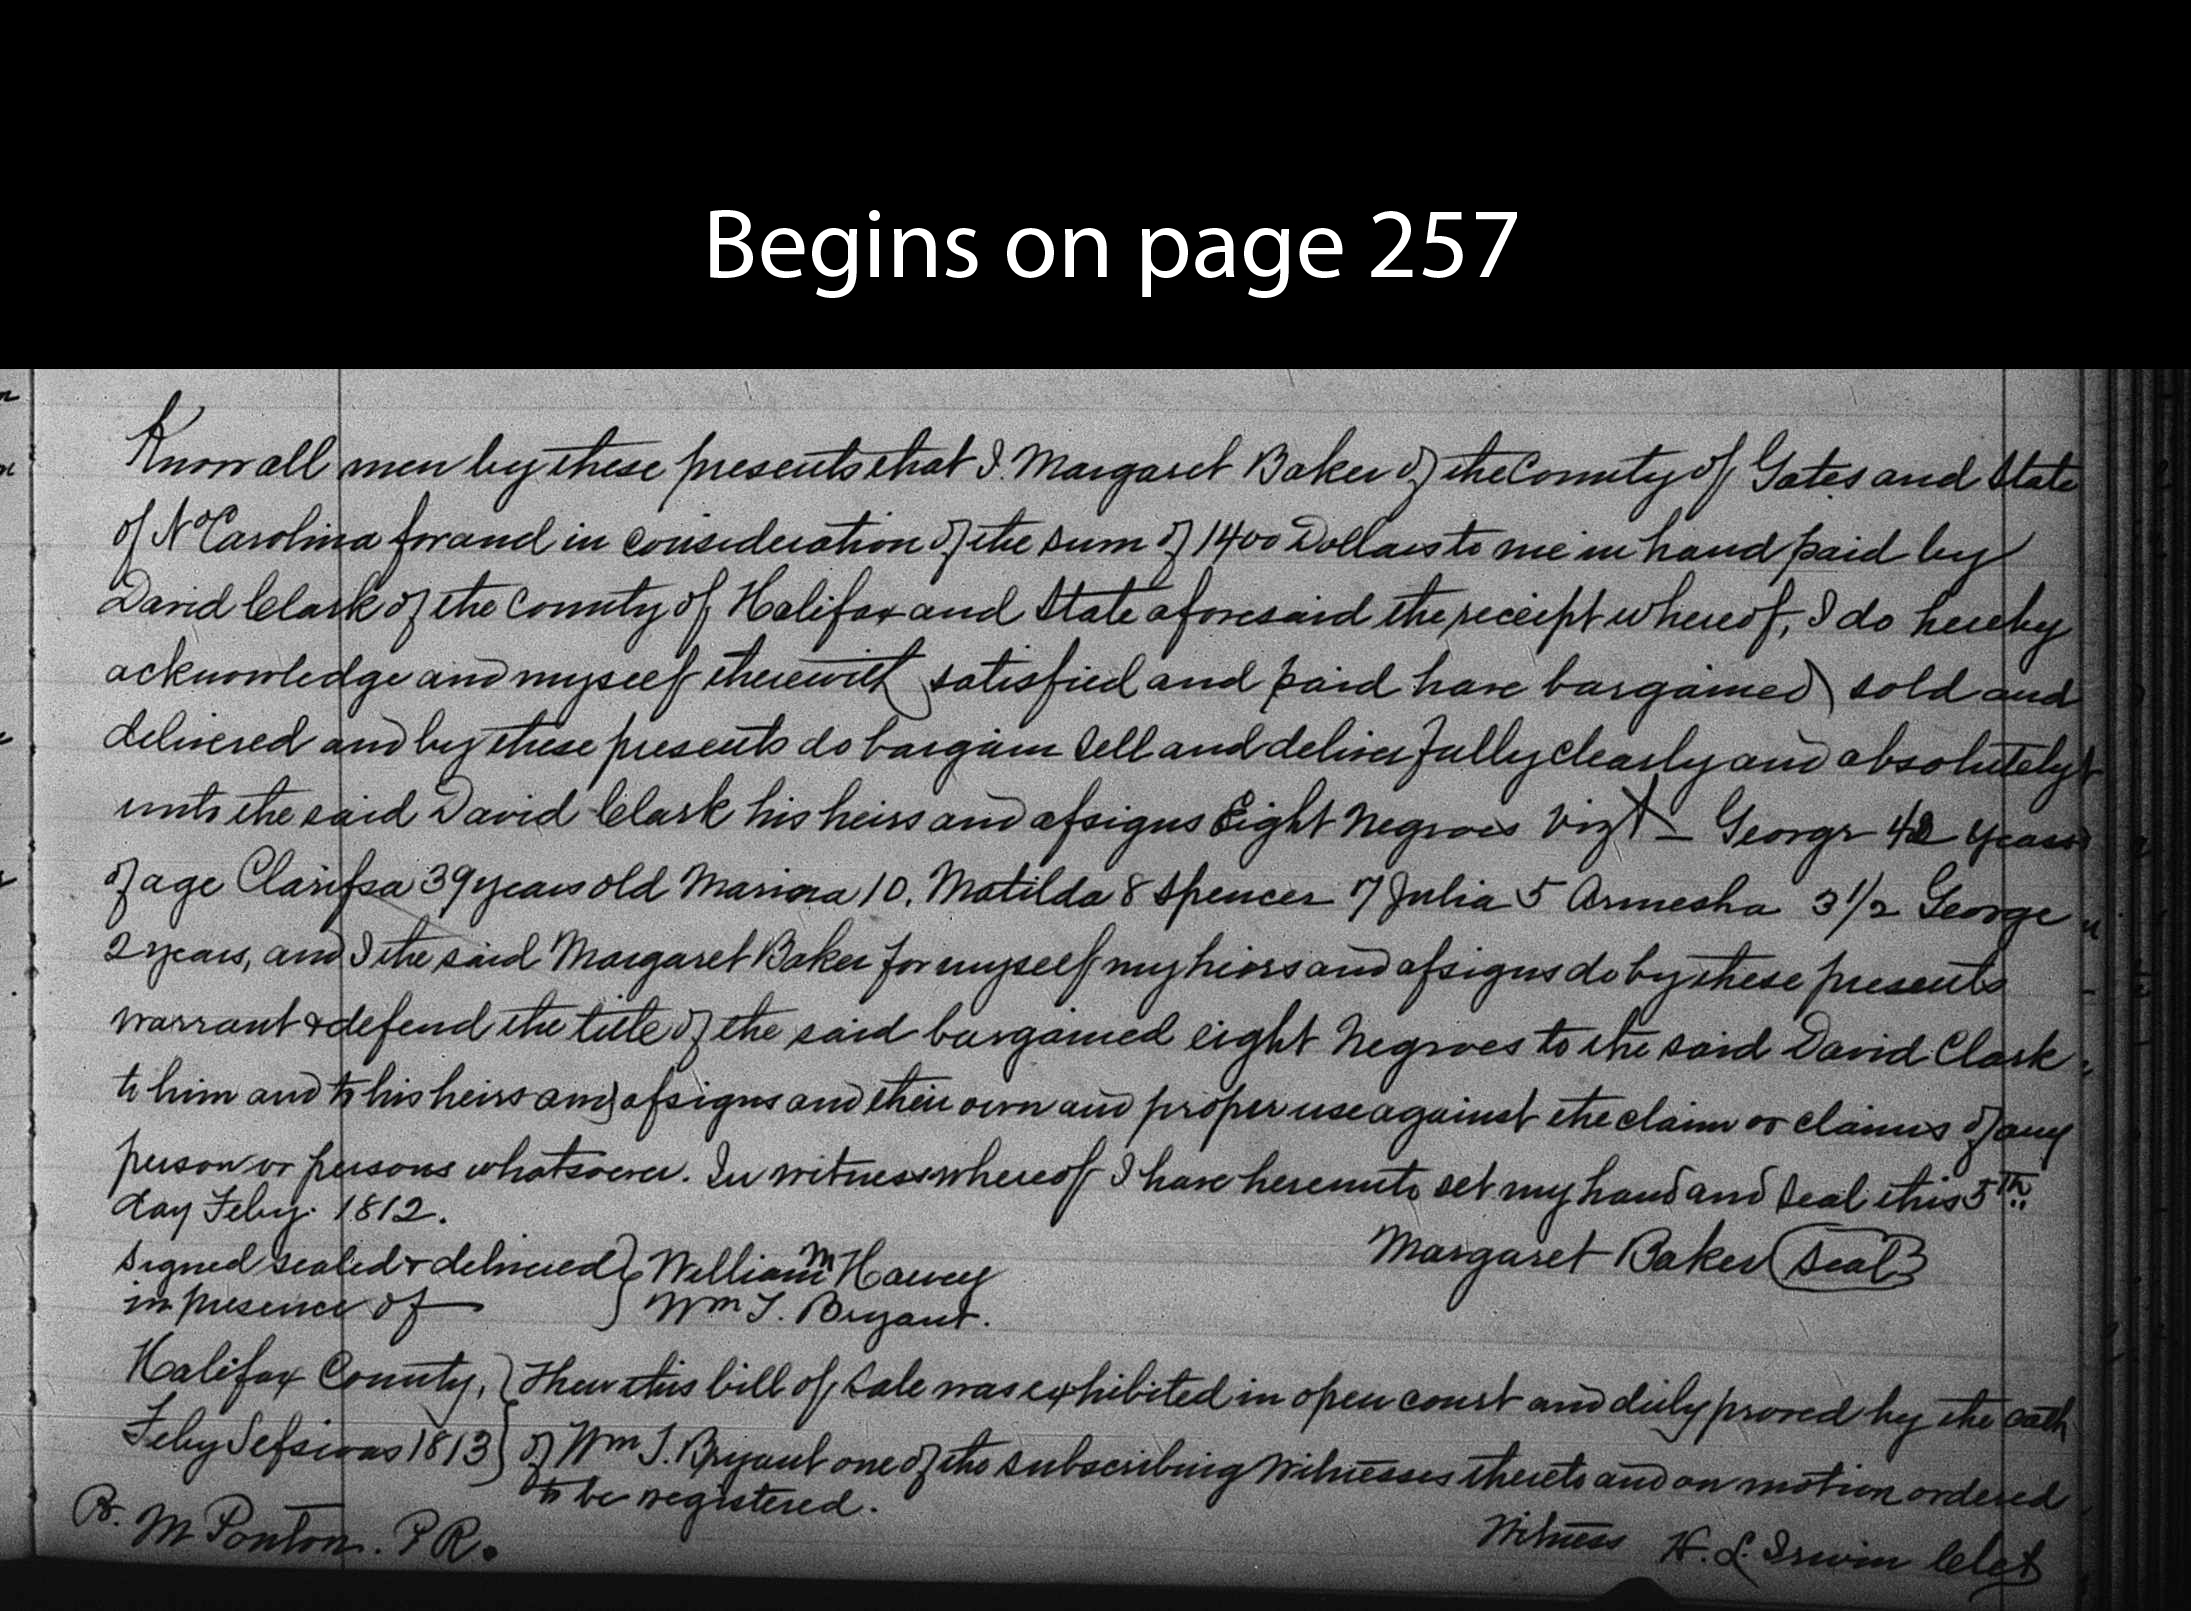 Begins on page 257
Know all men by these presents that I. Margaret Baker of the County of Gates and State
of No Carolina for and in consideration of the sum of 1400 Dollars to me in hand paid by
David Clark of the County of Halifax and State aforesaid the receipt whereof, I do hereby
acknowledge and myself therewith satisfied and paid have bargained sold and
delivered and by these presents do bargain sell and deliver fully clearly and absolutely
unto the said David Clark his heirs and assigns Eight Negroes Vizt - George 42 years
of age Clarissa 39 years old 10, Matilda 8 Spencer 7 Julia 5 Armesha 3 1/2 George
2 years, and I the said Margaret Baker for myself my heirs and assigns do by these presents
warrant & defend the title of the said bargained eight Negroes to the said David Clark
to him and to his heirs and assigns and their own and proper use against the claim or claims of any
person or persons whatsoever. In witness whereof I have hereunto set my hand and seal this 5th
day Feby. 1812.
Margaret Baker (Seal)
Signed sealed & delivered } William M Harvey
in presence of } Wm T. Bryant.
Halifax County, } Then this bill of sale was exhibited in open court and duly proved by the oath
Feby Sessions 1813 } of Wm T. Bryant one of the subscribing Witnesses thereto and on motion ordered
to be registered.
Witness H. L. Irwin
M Ponton. P R.